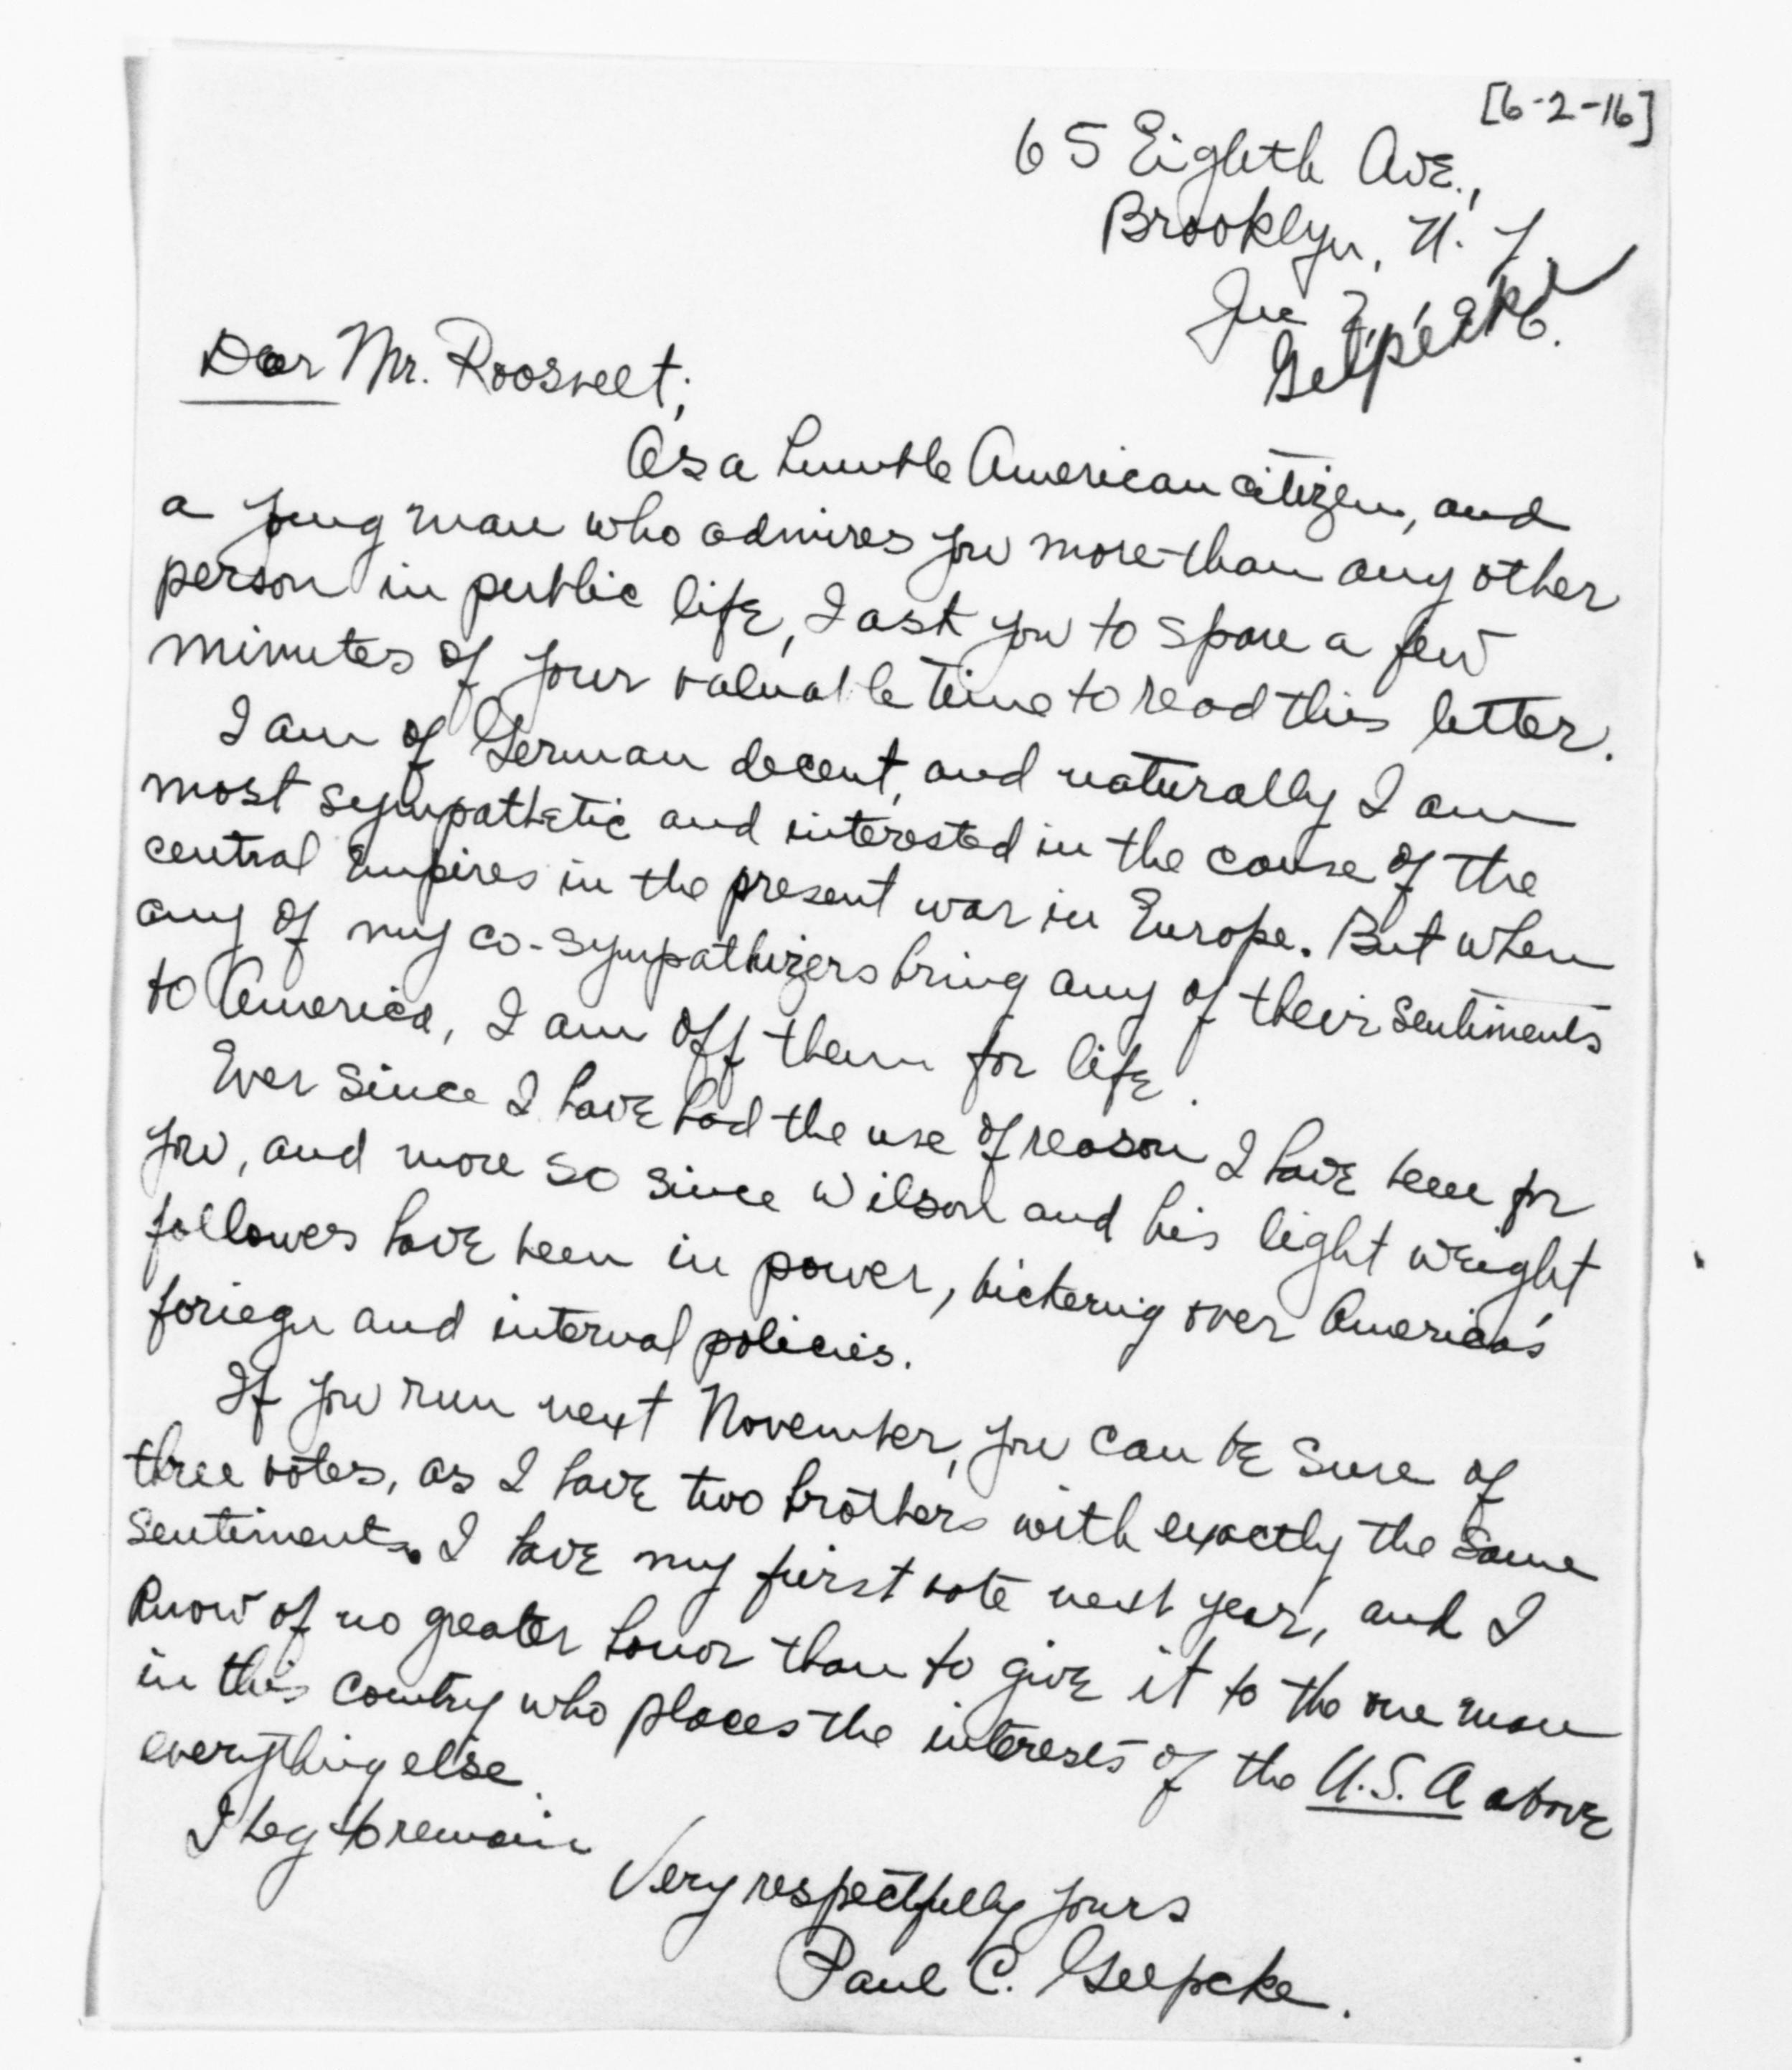 [6-2-16]
65 Eighth Ave.,
Brooklyn, N. Y.
Gelpcke
Dear Mr. Roosvelt;
As a humble American citizen, and
a young man who admires you more than any other
person in public life, I ask you to spare a few
minutes of your valuable time to read this letter.
I am of German decent, and naturally I am
most sympathetic and interested in the cause of the
central Empires in the present war in Europe. But when
any of my co-sympathizers bring any of their sentiments
to America, I am off them for life.
Ever since I have had the use of reason I have been for
you, and more so since Wilson and his light weight
followers have been in power, bickering over America's
foriegn and internal policies.
If you run next November, you can be sure of
three votes, as I have two brothers with exactly the same
sentiments. I have my first vote next year, and I
know of no greater honor than to give it to the one man
in this country who places the interests of the U.S.A above
everything else.
I beg to remain
Very respectfully yours
Paul C. Gelpcke.